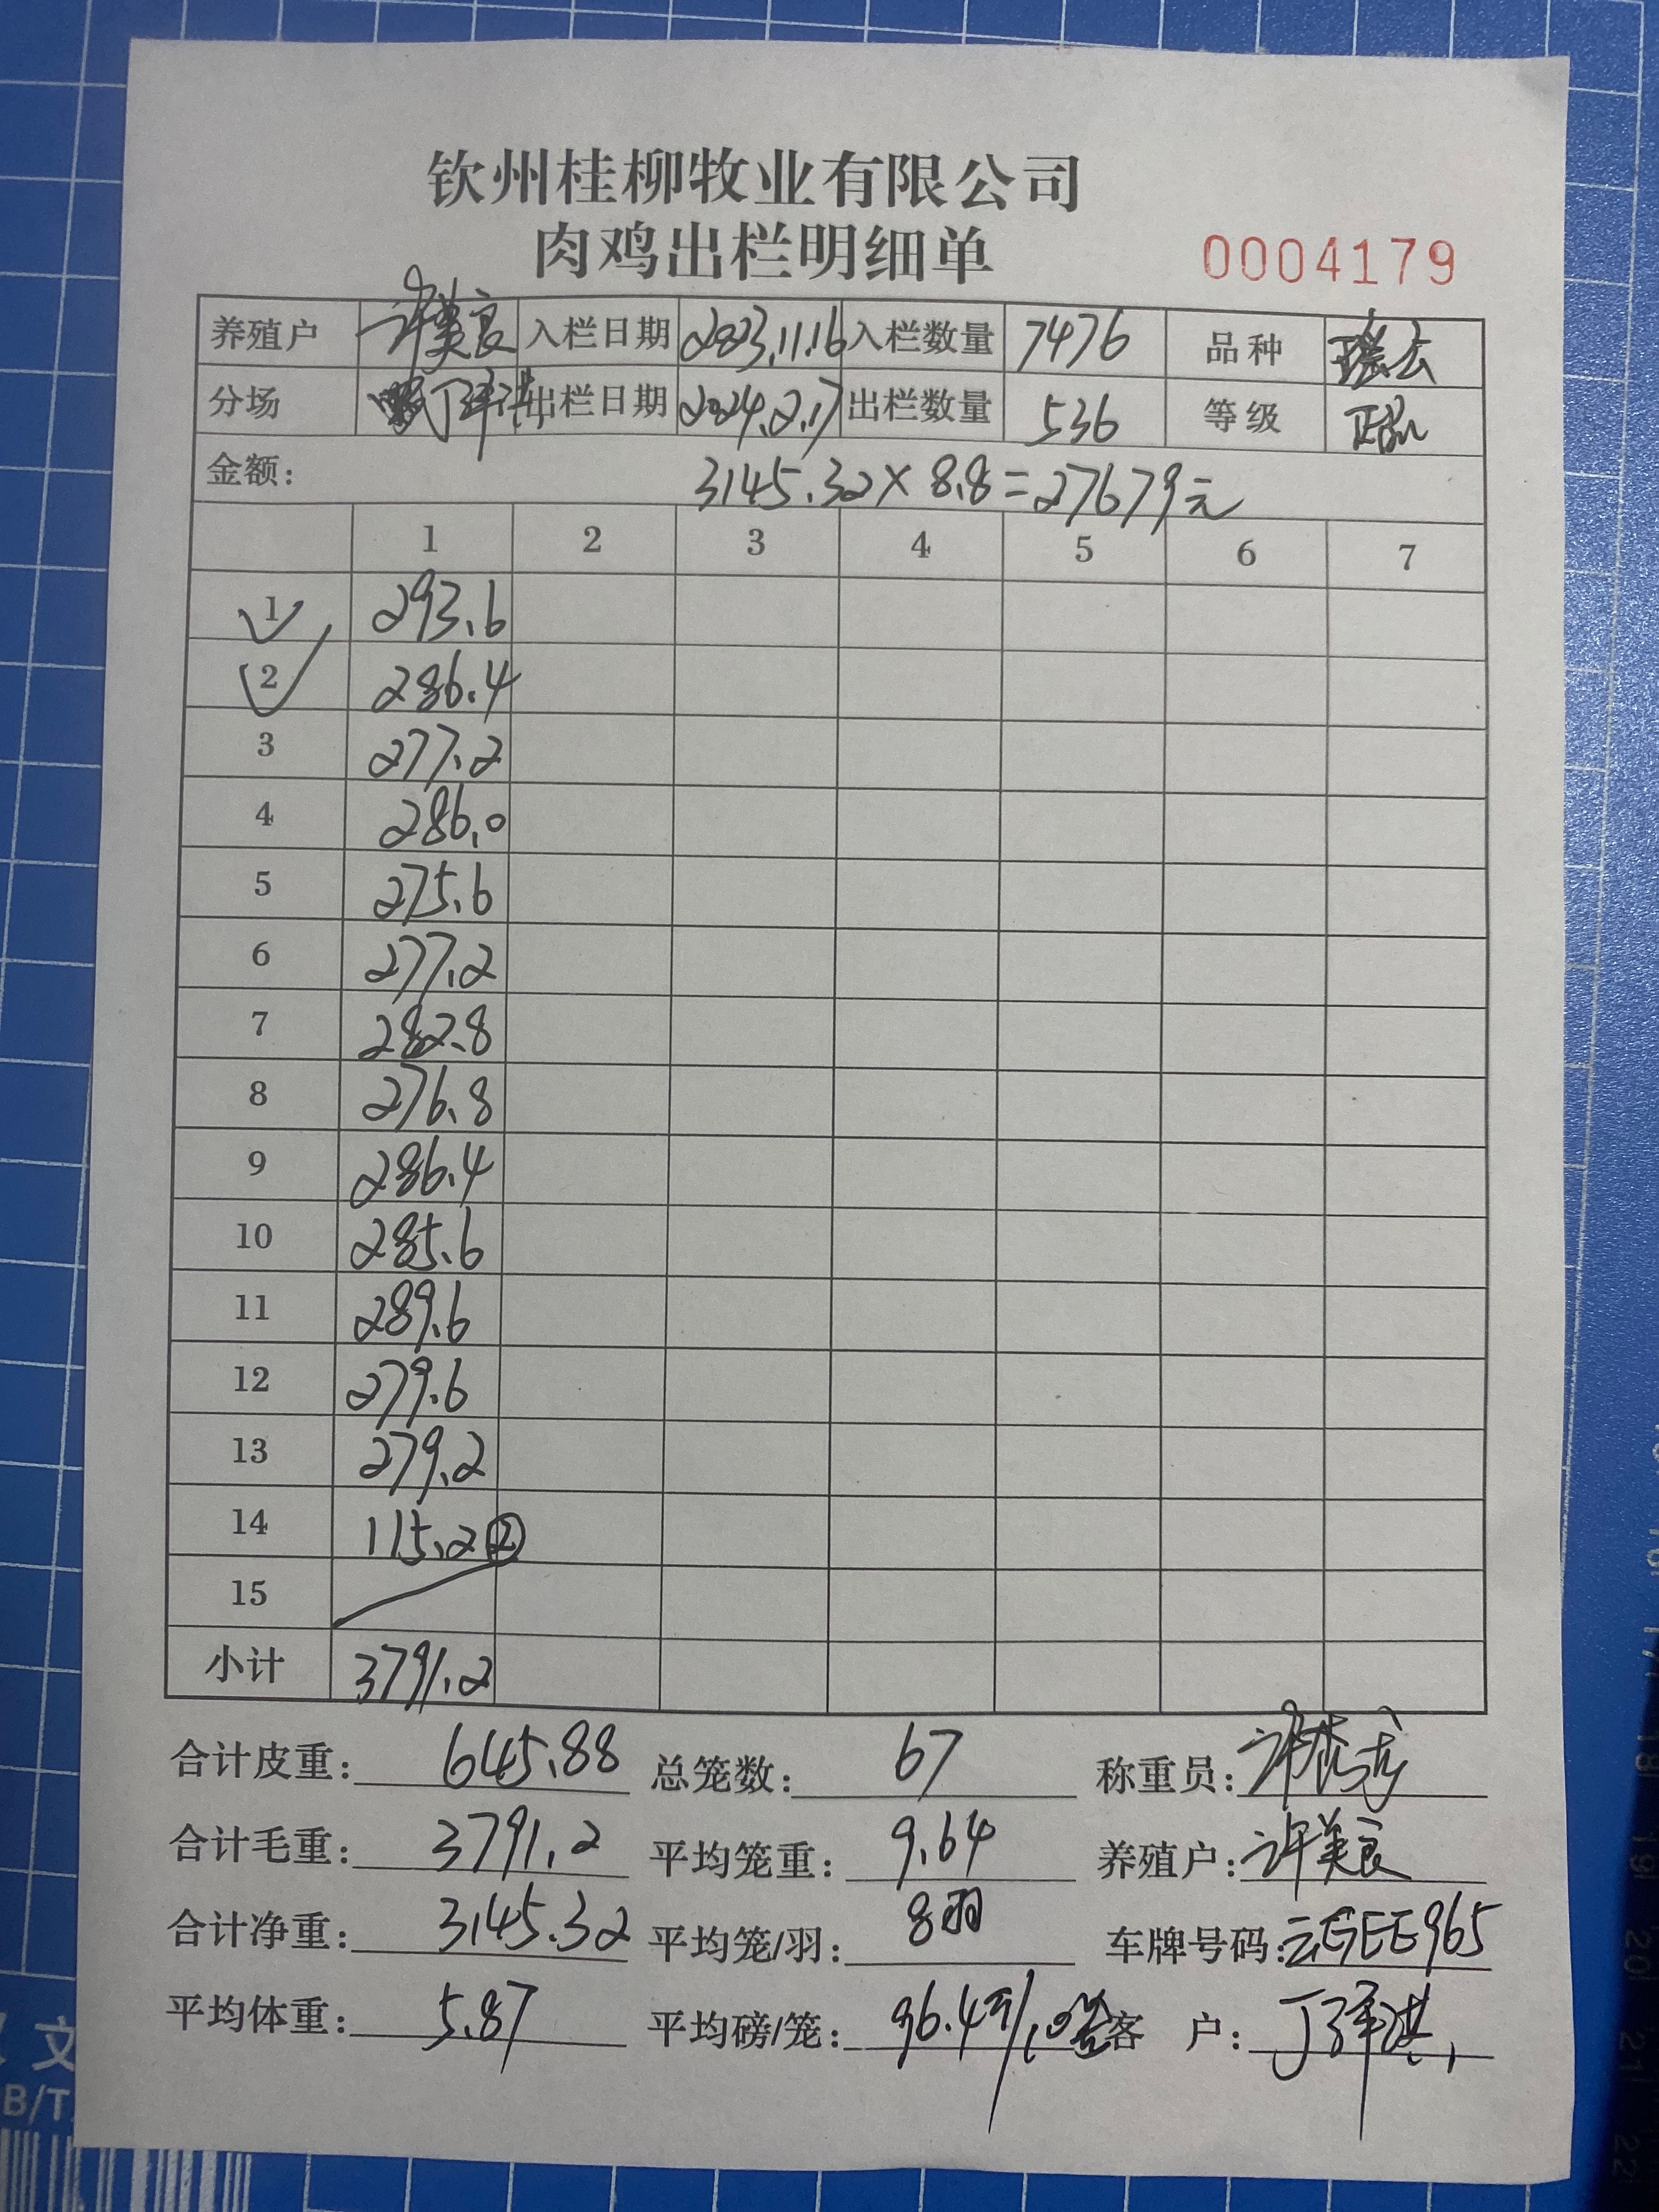 钦州桂柳牧业有限公司
肉鸡出栏明细单 0004179
养殖户 许美良 入栏日期 2023.11.16 入栏数量 7476 品种 瑶云
分场 出栏日期 2024.2.17 出栏数量 536 等级
金额: 3145.32×8.8=27679元
1 2 3 4 5 6 7
1 293.6
2 286.4
3 277.2
4 286.0
5 275.6
6 277.2
7 282.8
8 276.8
9 286.4
10 285.6
11 289.6
12 279.6
13 279.2
14 115.2 ②
15
小计 3791.2
合计皮重: 645.88 总笼数: 67 称重员:
合计毛重: 3791.2 平均笼重: 9.64 养殖户: 许美良
合计净重: 3145.32 平均笼/羽: 8羽 车牌号码: 云GEE965
平均体重: 5.87 平均磅/笼: 96.4 客 户: